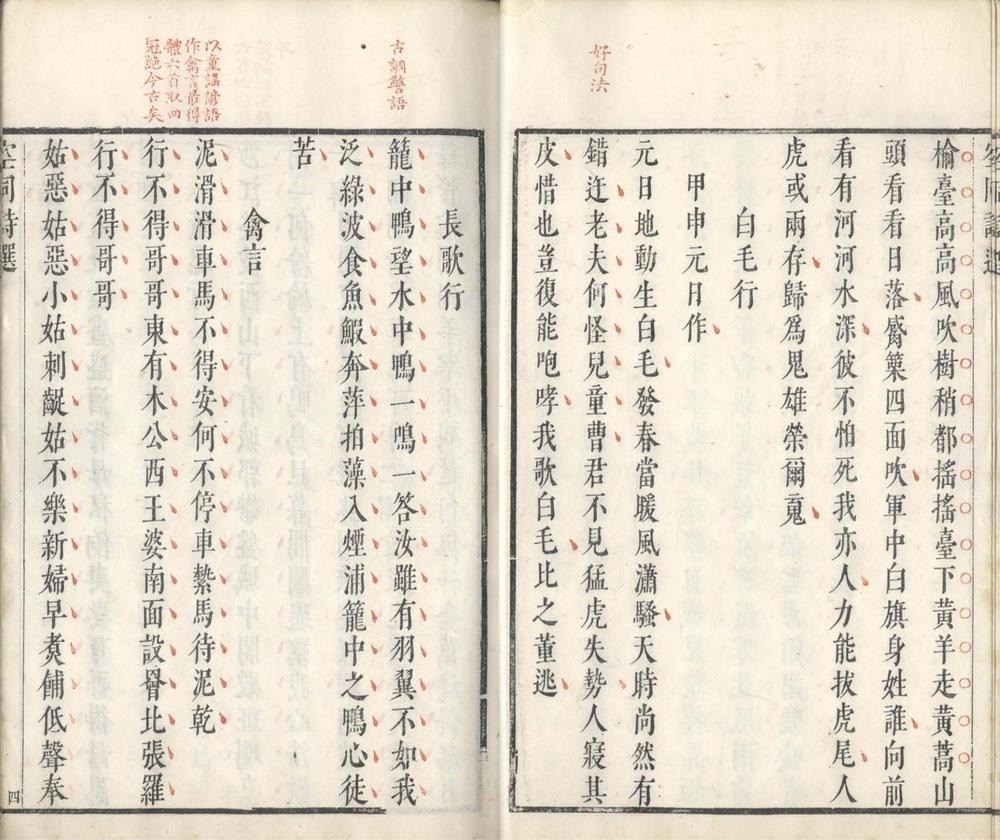 好句法
榆臺高高風吹樹稍都搖搖臺下黃羊走黃蒿山
頭看看日落觱篥四面吹軍中白旗身姓誰向前
看有河河水深彼不怕死我亦人力能拔虎尾人
虎或兩存歸爲鬼雄榮爾䰟
白毛行
甲申元日作
元日地動生白毛發春當暖風瀟騷天時尚然有
錯迕老夫何怪兒童曹君不見猛虎失勢人寢其
皮惜也豈復能咆哮我歌白毛比之董逃
古調警語
長歌行
籠中鴨望水中鴨一鳴一答汝雖有羽翼不如我
泛綠波食魚鰕奔萍拍藻入煙浦籠中之鴨心徒
苦
以童謡諺語
作禽言最得
體六首取四
冠絕今古矣
禽言
泥滑滑車馬不得安何不停車縶馬待泥乾
行不得哥哥東有木公西王婆南面設罾北張羅
行不得哥哥
姑惡姑惡小姑刺齪姑不樂新婦早煑餔低聲奉
空同詩選
四